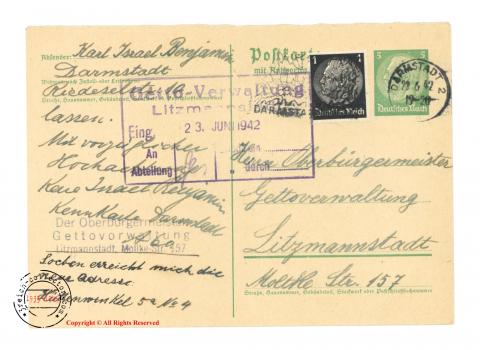 Absender: Karl Israel Benjamin
Darmstadt
Riedeselstr. 16
Straße, Hausnummer, Gebäudeteil, Stockwerk oder Postschließfachnummer
lassen.
Mit vorzüglicher
Hochachtung
Karl Israel Benjamin
Kennkarte Darmstadt
Der Oberbürgermeister
Gettoverwaltung
Litzmannstadt, Moltke Str. 157
Soeben erreicht mich die
neue Adresse
5a No 4
Postkarte
mit Antwort
Getto-Verwaltung
Litzmannstadt
Eing. 23. JUNI 1942
An
Abteilung
durch
1
Deutsches Reich
5 5
Deutsches Reich
DARMSTADT 2
6.42
DARMSTA
Herrn Oberbürgermeister
Gettoverwaltung
Litzmannstadt
Moltke Str. 157
Straße, Hausnummer, Gebäudeteil, Stockwerk oder Postschließfachnummer
Copyright © All Rights Reserved